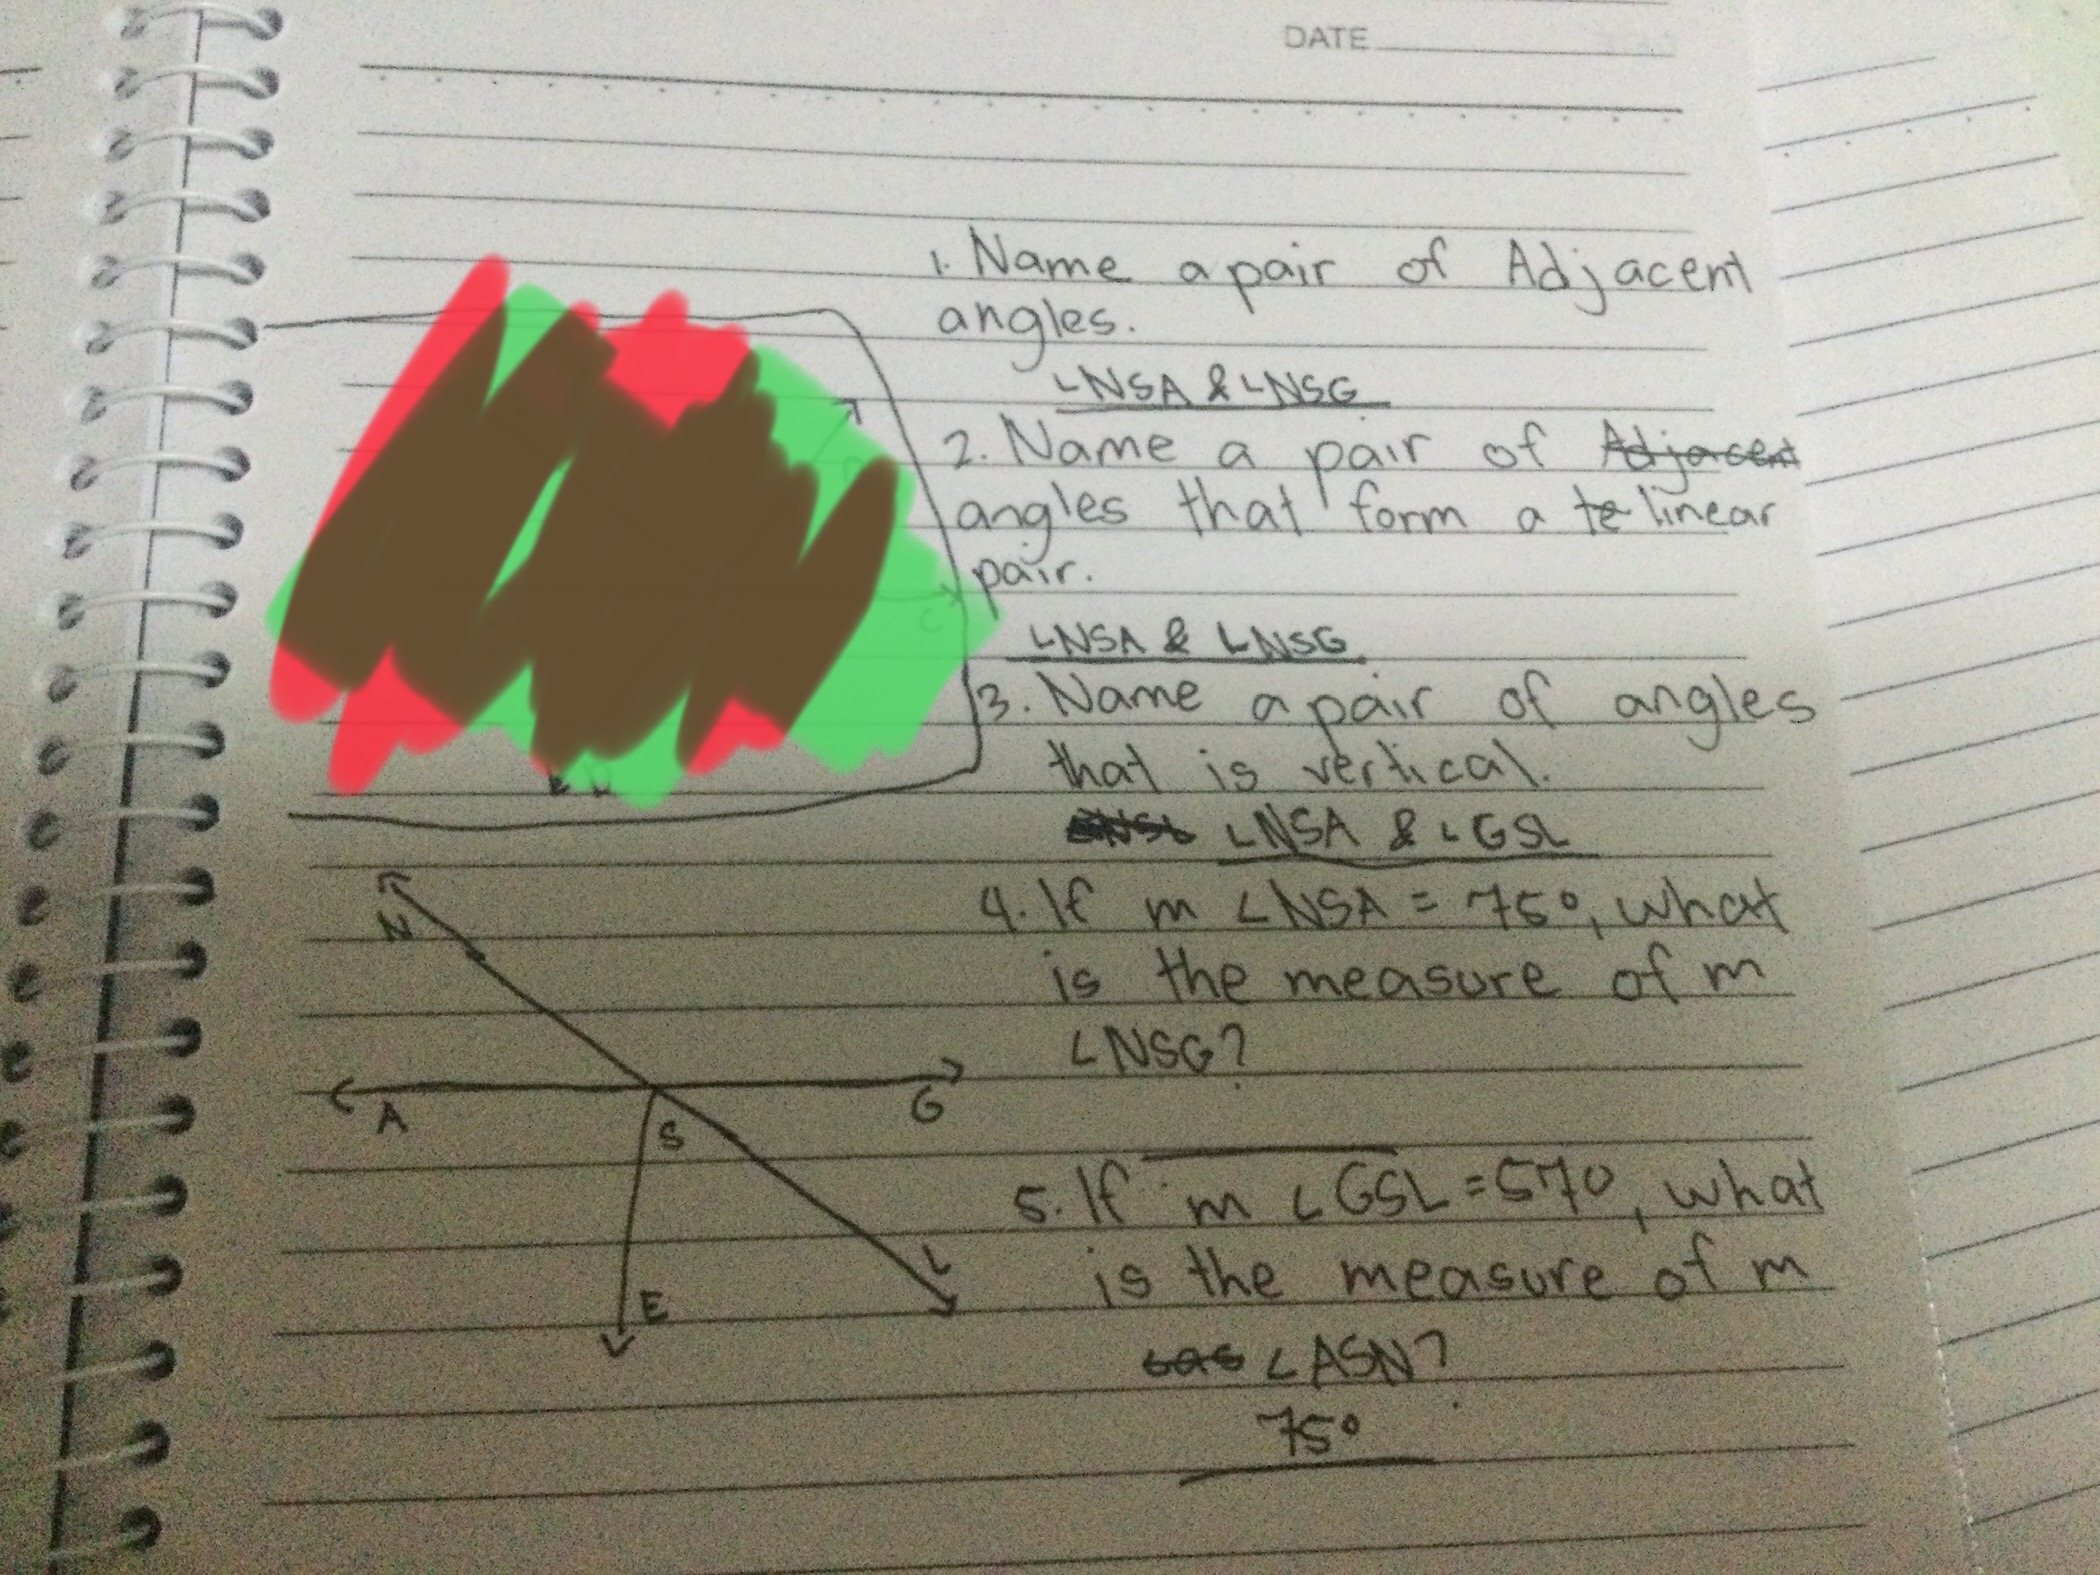 DATE
1. Name a pair of Adjacent
angles.
∠NSA & ∠NSG
2. Name a pair of Adjacent
angles that form a te linear
pair.
∠NSA & ∠NSG
3. Name a pair of angles
that is vertical.
∠NSA & ∠GSL
4. If m ∠NSA = 75°, what
is the measure of m
∠NSG?
5. If m ∠GSL = 57°, what
is the measure of m
∠ASN?
75°
C
N
A
S
G
L
E